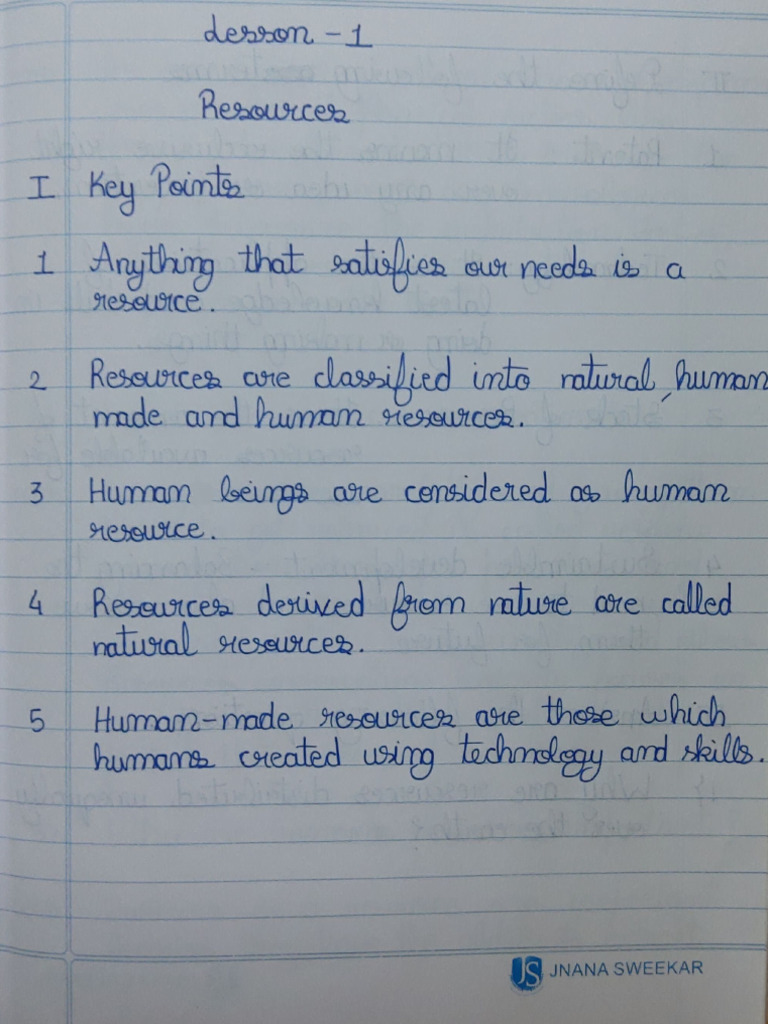 Lesson - 1
Resources
I Key Points
1 Anything that satisfies our needs is a
resource.
2 Resources are classified into natural, human
made and human resources.
3 Human beings are considered as human
resource.
4 Resources derived from nature are called
natural resources.
5 Human-made resources are those which
humans created using technology and skills.
JS JNANA SWEEKAR